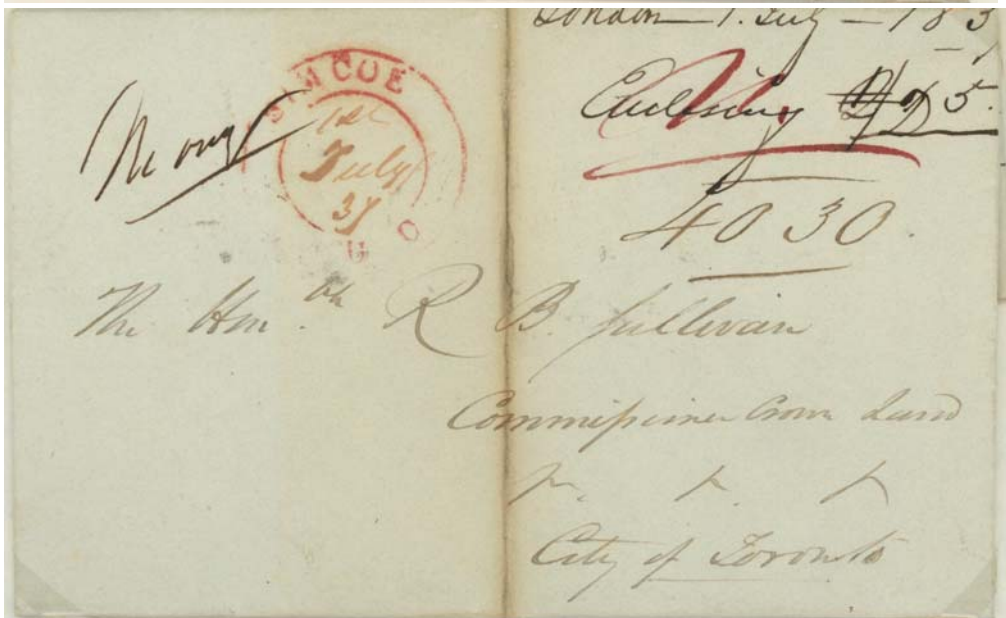 London — 1. July — 183
Enclosing 25
Money
SIMCOE
1st
July
37
U C
4030.
The Hon.ble R B. Sullivan
Commissioner Crown Land
City of Toronto